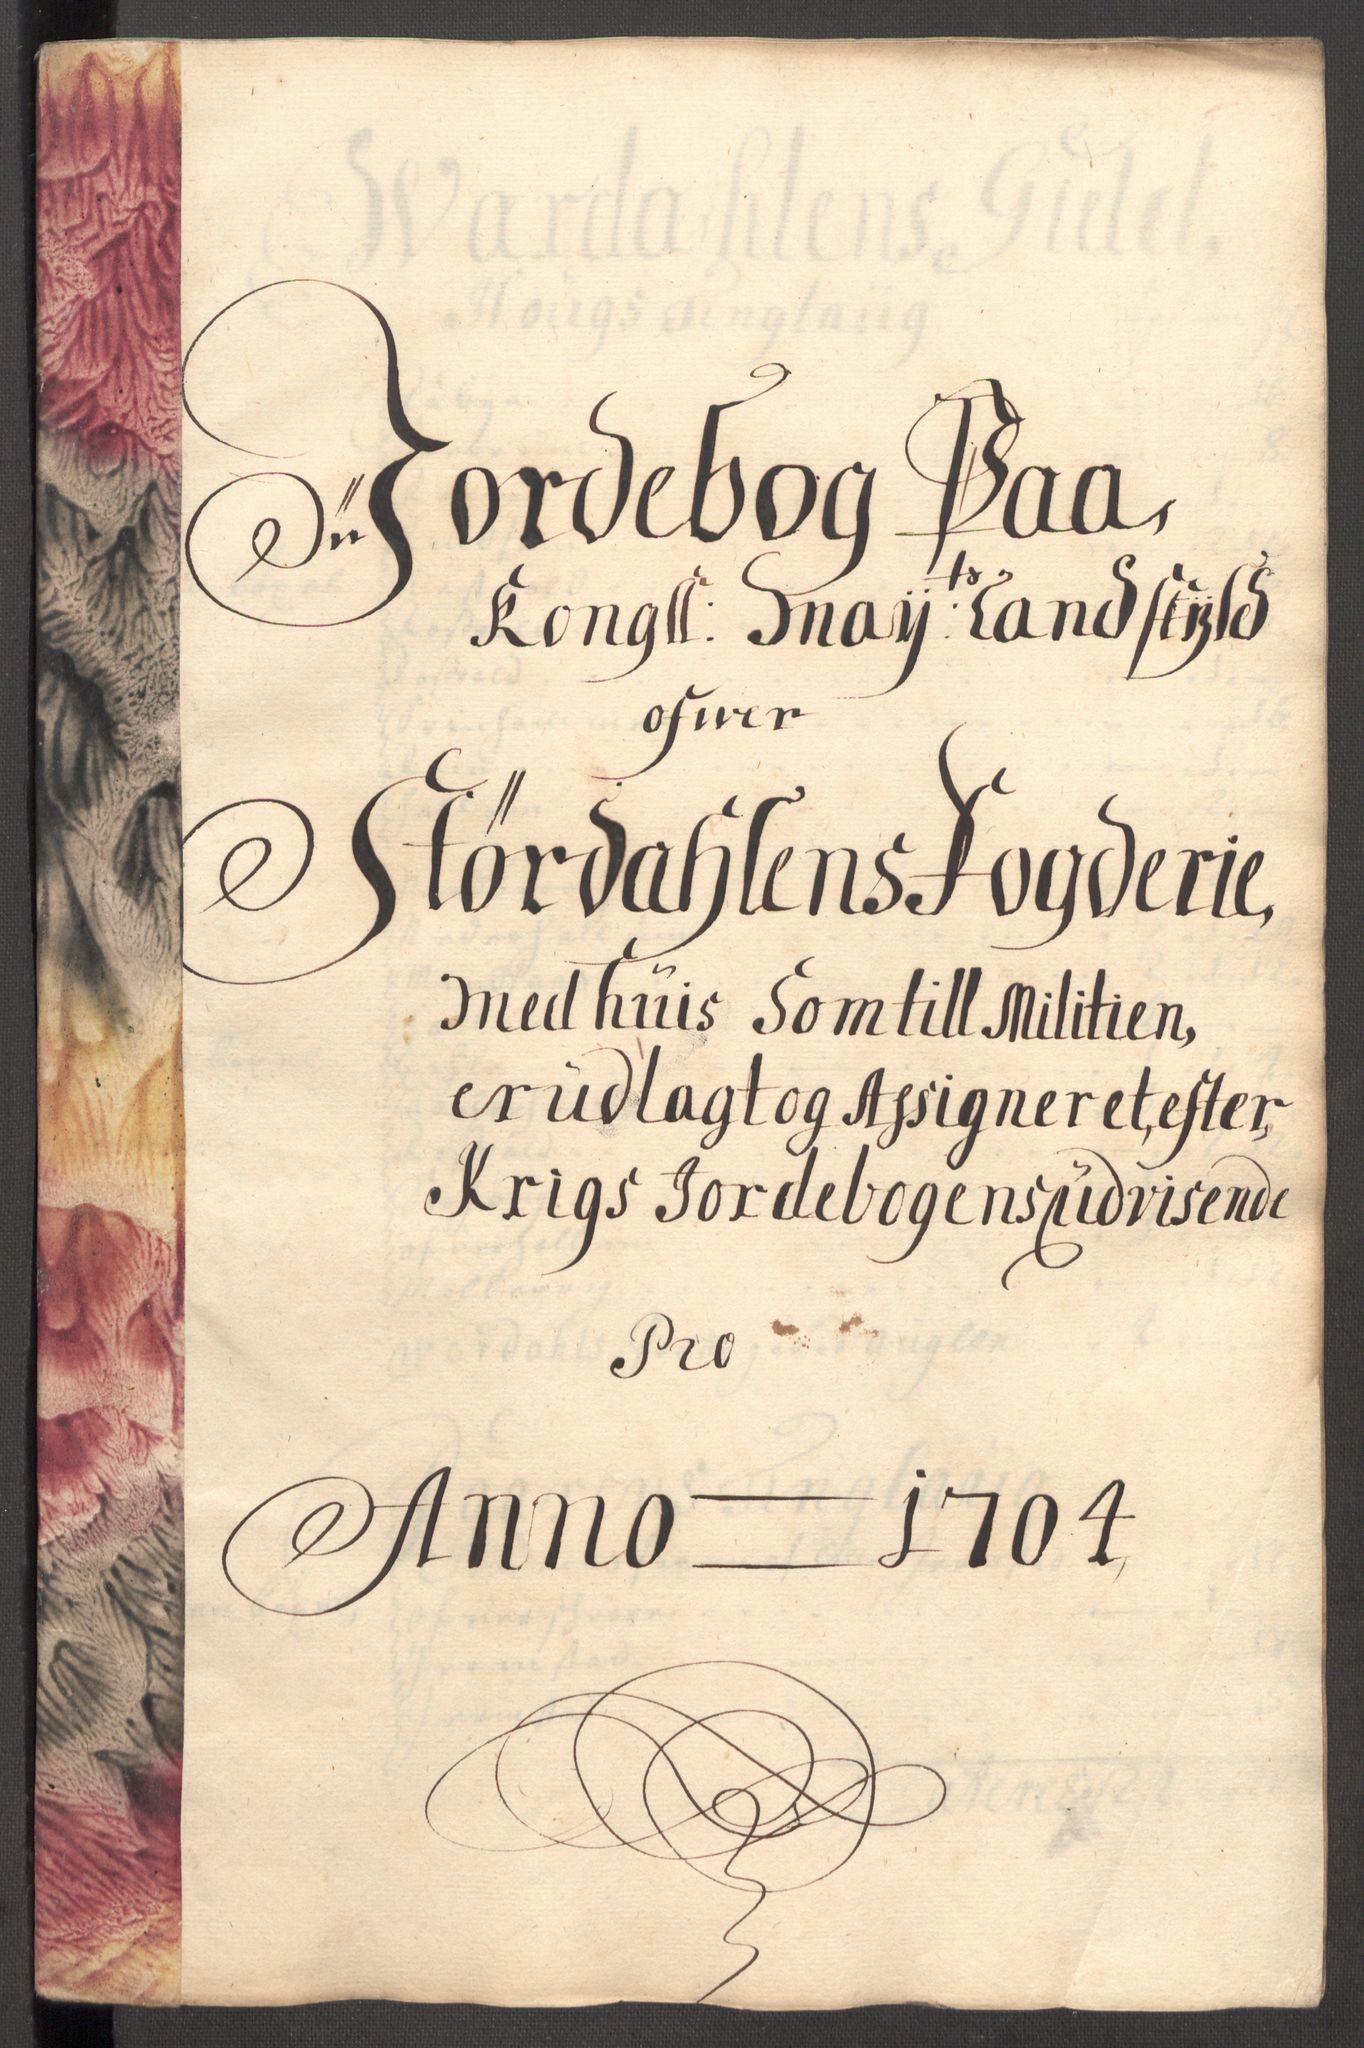 Jordebog Paa,
Kongll: May:ts Landskyld
ofwer
Størdahlens Fogderie,
med huis Som till Militien,
er üdlagt og Assigneret, efter,
Krigs Jordebogens üdvisende
Pro
Anno 1704